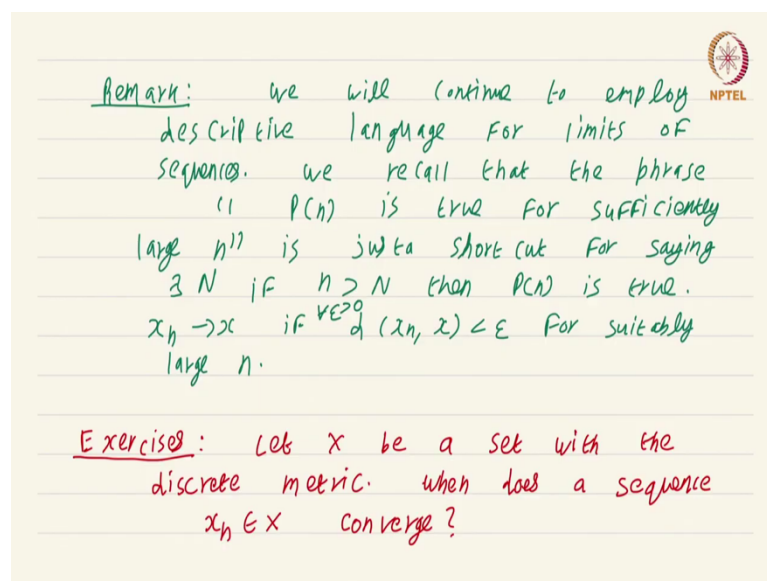 Remark: we will continue to employ
NPTEL
descriptive language for limits of
sequences. we recall that the phrase
" P(n) is true for sufficiently
large n" is just a short cut for saying
∃ N if n > N then P(n) is true.
xₙ → x if ∀ε>0 d(xₙ, x) < ε for suitably
large n.
Exercises: Let X be a set with the
discrete metric. when does a sequence
xₙ ∈ X converge?